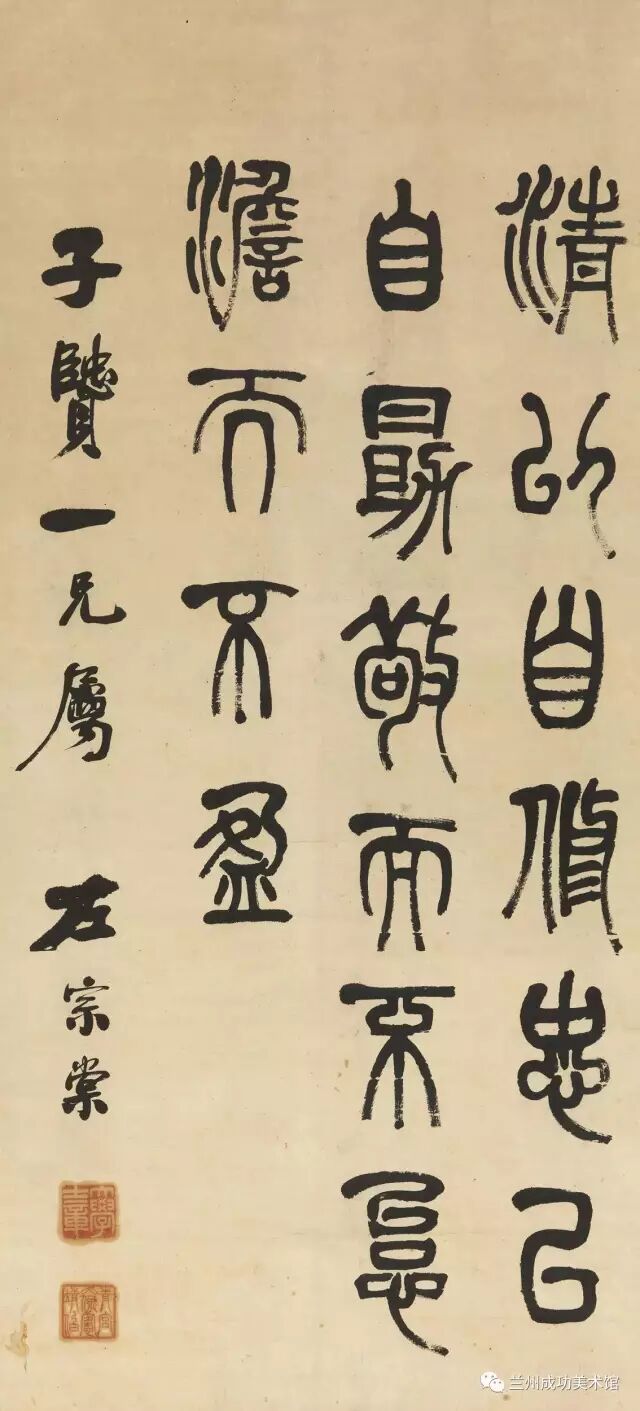 清以自修忠以
自勖敬而不怠
澹而不盈
子贒一兄屬 左宗棠
兰州成功美术馆